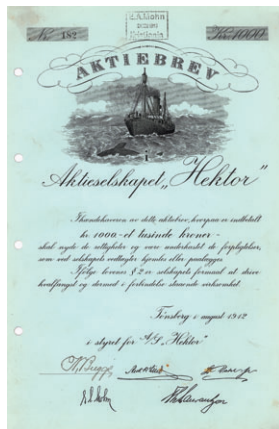 No 182
Kr. 1000
AKTIEBREV
Aktieselskapet „Hektor"
Ihændehaveren av dette aktiebrev, hvorpaa er indbetalt
kr. 1000 - et tusinde kroner -
skal nyde de rettigheter og være underkastet de forpligtelser,
som ved selskapets vedtægter hjemles eller paalægges.
Ifølge lovenes § 2 er selskapets formaal at drive
hvalfangst og dermed i forbindelse staaende virksomhet.
Tönsberg i august 1912
i styret for A/S „Hektor"